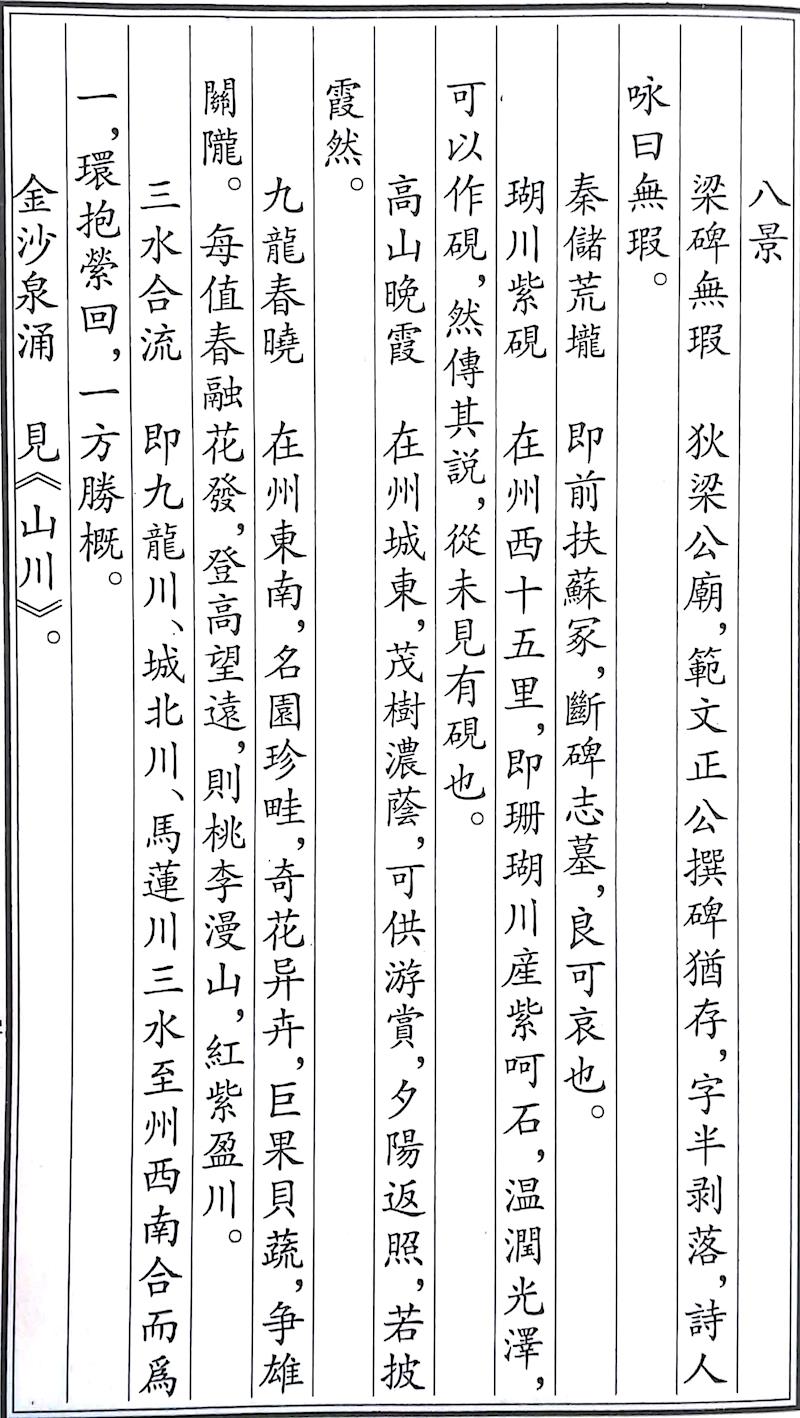 八景
梁碑無瑕　狄梁公廟，範文正公撰碑猶存，字半剥落，詩人
咏曰無瑕。
秦儲荒壠　即前扶蘇冢，斷碑志墓，良可哀也。
瑚川紫硯　在州西十五里，即珊瑚川産紫呵石，温潤光澤，
可以作硯，然傳其説，從未見有硯也。
高山晚霞　在州城東，茂樹濃蔭，可供游賞，夕陽返照，若披
霞然。
九龍春曉　在州東南，名園珍畦，奇花异卉，巨果貝蔬，争雄
關隴。每值春融花發，登高望遠，則桃李漫山，紅紫盈川。
三水合流　即九龍川、城北川、馬蓮川三水至州西南合而爲
一，環抱縈回，一方勝概。
金沙泉涌　見《山川》。